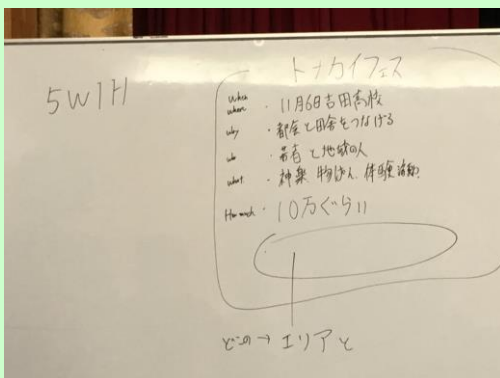 5W1H
トカイフェス
when
where ・11月6日吉田高校
why ・都会と田舎をつなげる
who ・若者と地域の人
what ・神楽 物ぱん 体験活動
How much ・10万ぐらい
どこの→エリアと